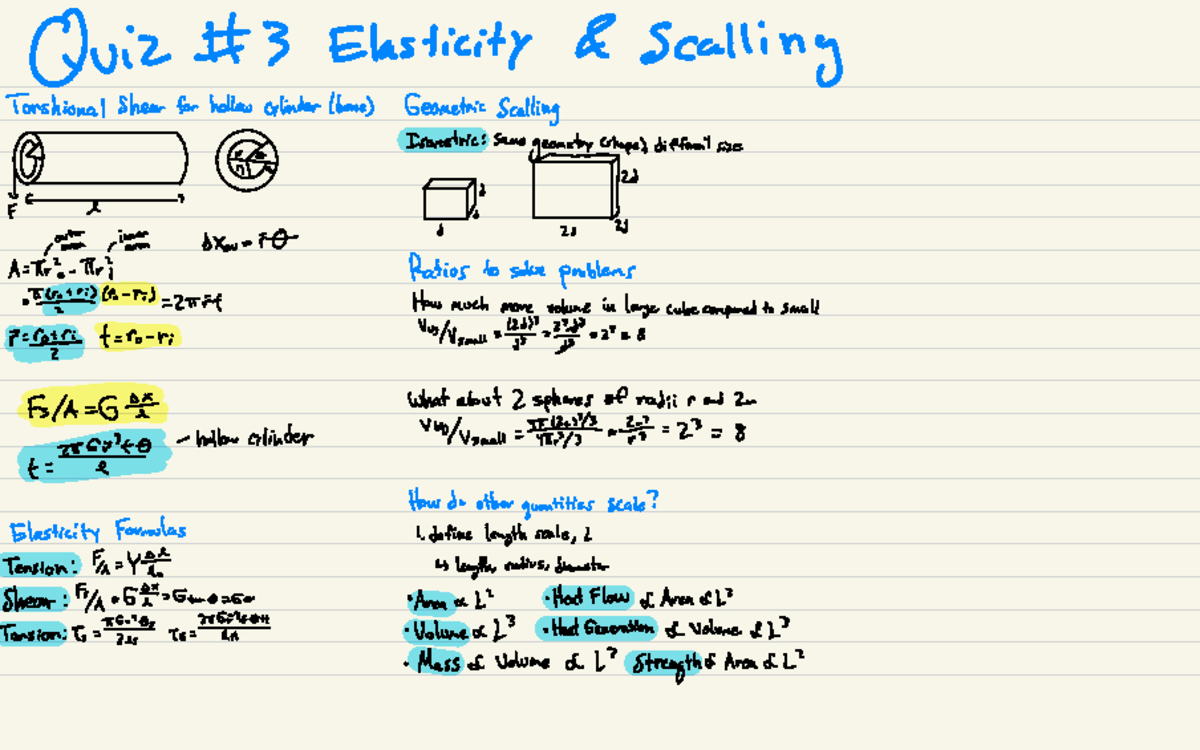 Quiz #3 Elasticity & Scalling
Torshional Shear for hollow cylinder (bone)
F
l
outer inner
Δx = r̄θ
A = πr₀² - πrᵢ²
= π(r₀+rᵢ)/2 (r₀-rᵢ) = 2πr̄t
r̄ = r₀+rᵢ/2 t = r₀-rᵢ
Fs/A = G Δx/l
t = 2πGr³tθ/l - hollow cylinder
Elasticity Formulas
Tension: F/A = Y Δl/l₀
Shear: Fs/A = G Δx/l = G tan θ = Gθ
Torsion:
Geometric Scalling
Isometric: same geometry (shape), different size
d d d
2d 2d 2d
Ratios to solve problems
How much more volume in large cube compared to small
/Vsmall = (2d)³/d³ = 2³d³/d³ = 2³ = 8
What about 2 spheres of radii r and 2r
/Vsmall = = 2³ = 8
How do other quantities scale?
1. define length scale, L
↳ length, radius, diameter
• Area ∝ L² • Heat Flow ∝ Area ∝ L²
• Volume ∝ L³ • Heat Generation ∝ Volume ∝ L³
• Mass ∝ Volume ∝ L³ Strength ∝ Area ∝ L²